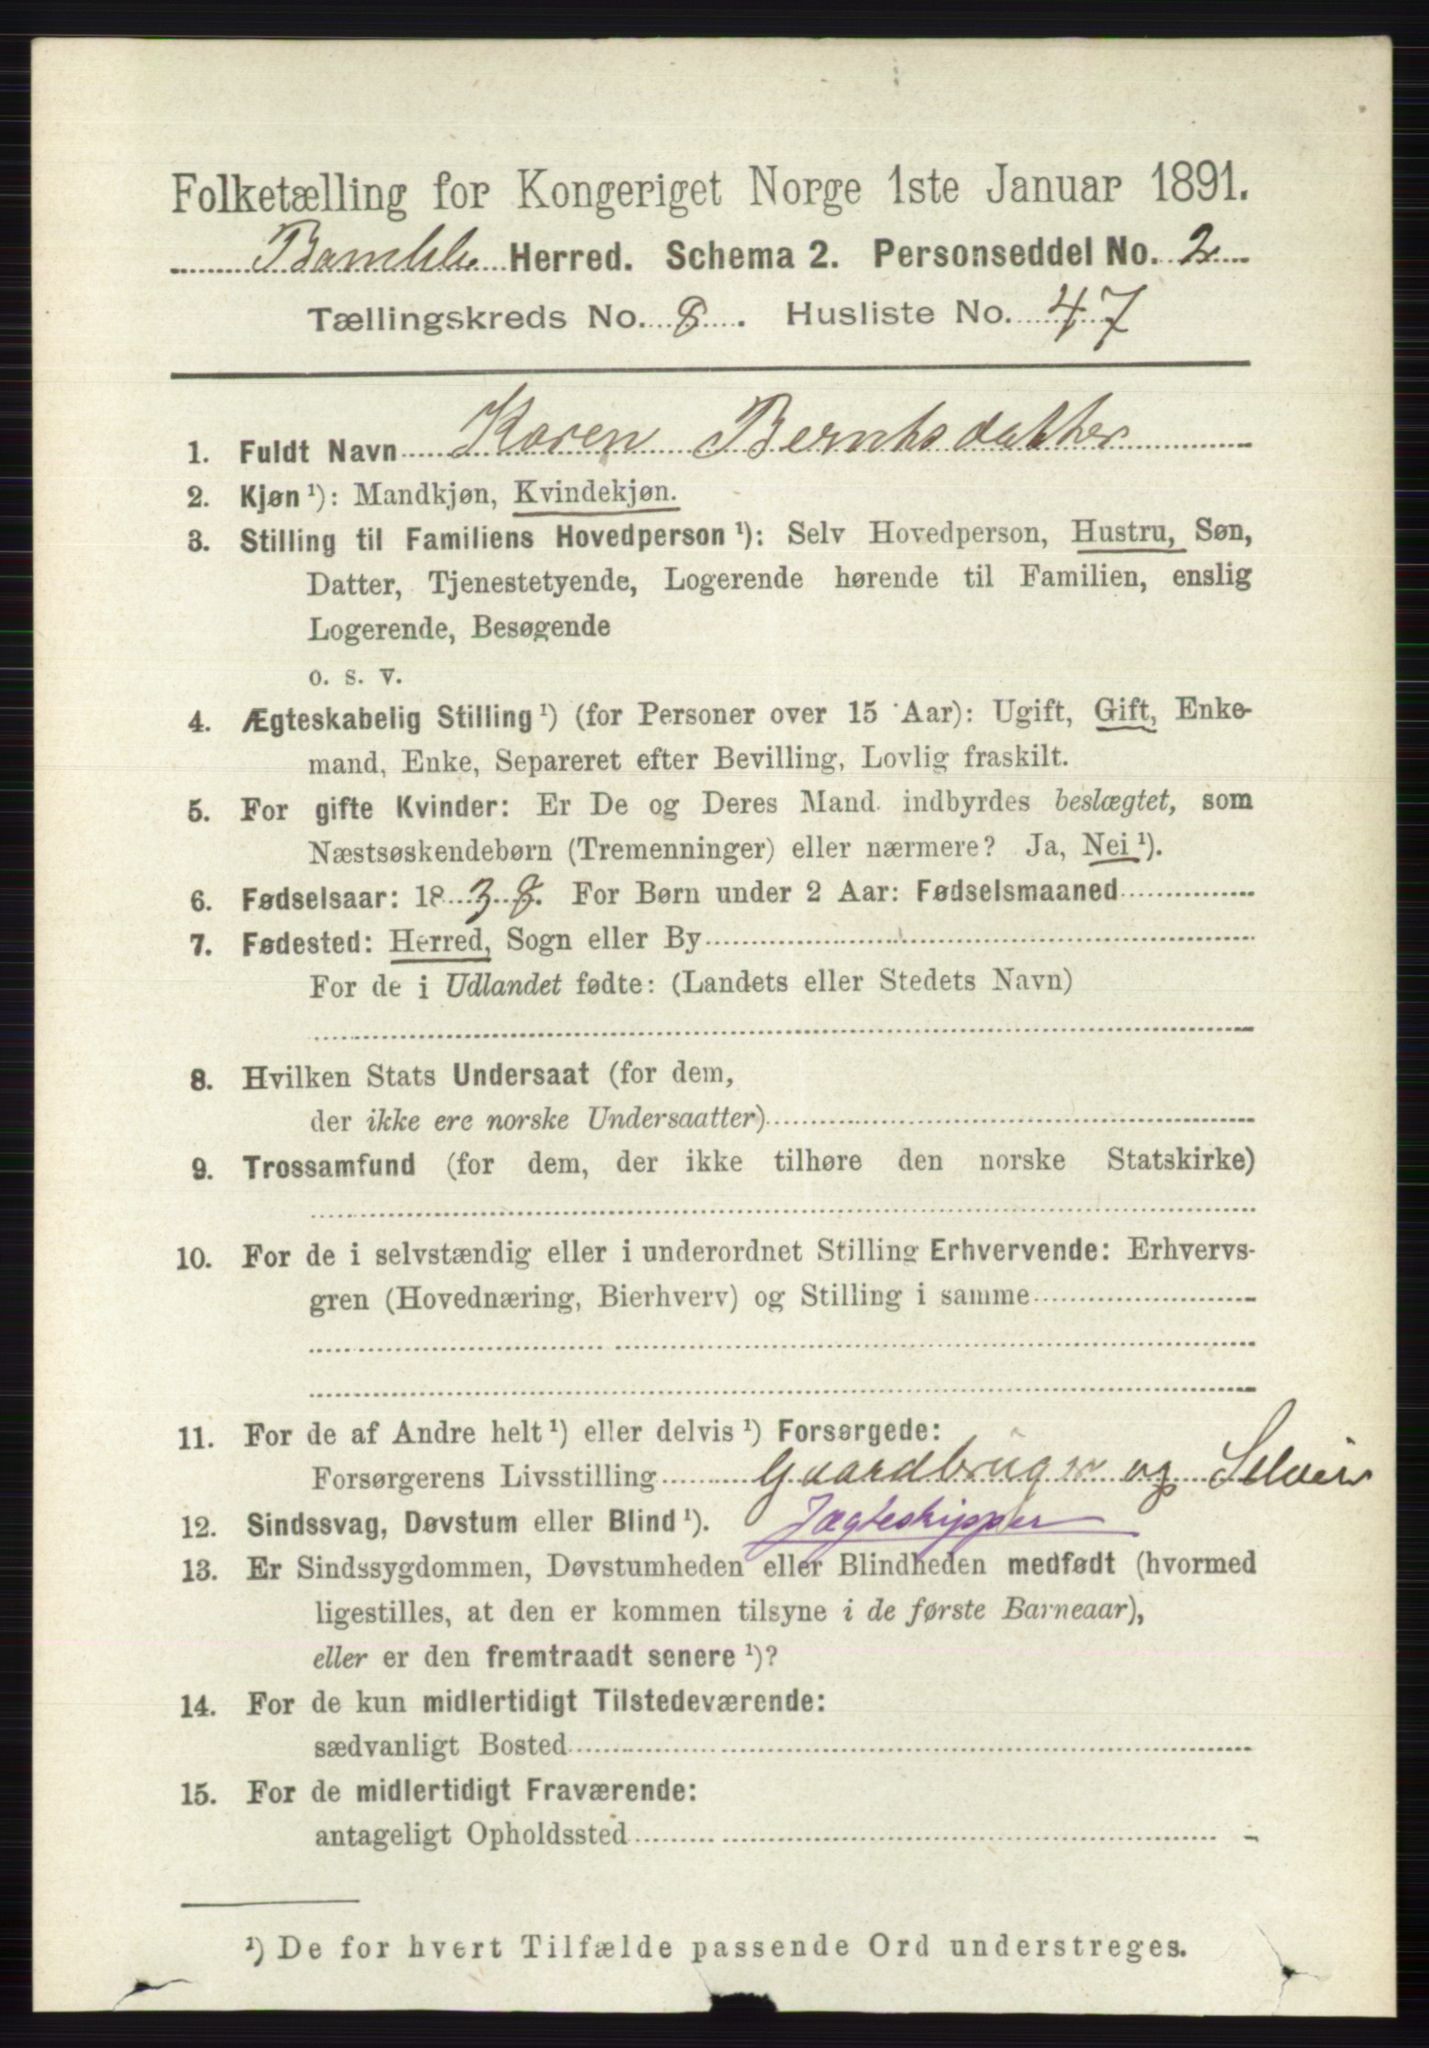 Folketælling for Kongeriget Norge 1ste Januar 1891.
Bamble Herred. Schema 2. Personseddel No. 2
Tællingskreds No. 8. Husliste No. 47
1. Fuldt Navn Karen Berntsdatter
2. Kjøn ¹): Mandkjøn, Kvindekjøn.
3. Stilling til Familiens Hovedperson ¹): Selv Hovedperson, Hustru, Søn,
Datter, Tjenestetyende, Logerende hørende til Familien, enslig
Logerende, Besøgende
o. s. v.
4. Ægteskabelig Stilling ¹) (for Personer over 15 Aar): Ugift, Gift, Enke-
mand, Enke, Separeret efter Bevilling, Lovlig fraskilt.
5. For gifte Kvinder: Er De og Deres Mand indbyrdes beslægtet, som
Næstsøskendebørn (Tremenninger) eller nærmere? Ja, Nei ¹).
6. Fødselsaar: 1838. For Børn under 2 Aar: Fødselsmaaned
7. Fødested: Herred, Sogn eller By
For de i Udlandet fødte: (Landets eller Stedets Navn)
8. Hvilken Stats Undersaat (for dem,
der ikke ere norske Undersaatter)
9. Trossamfund (for dem, der ikke tilhøre den norske Statskirke)
10. For de i selvstændig eller i underordnet Stilling Erhvervende: Erhvervs-
gren (Hovednæring, Bierhverv) og Stilling i samme
11. For de af Andre helt ¹) eller delvis ¹) Forsørgede:
Forsørgerens Livsstilling Gaardbruger og Selveier
12. Sindssvag, Døvstum eller Blind ¹). Jægteskipper
13. Er Sindssygdommen, Døvstumheden eller Blindheden medfødt (hvormed
ligestilles, at den er kommen tilsyne i de første Barneaar),
eller er den fremtraadt senere ¹)?
14. For de kun midlertidigt Tilstedeværende:
sædvanligt Bosted
15. For de midlertidigt Fraværende:
antageligt Opholdssted
¹) De for hvert Tilfælde passende Ord understreges.